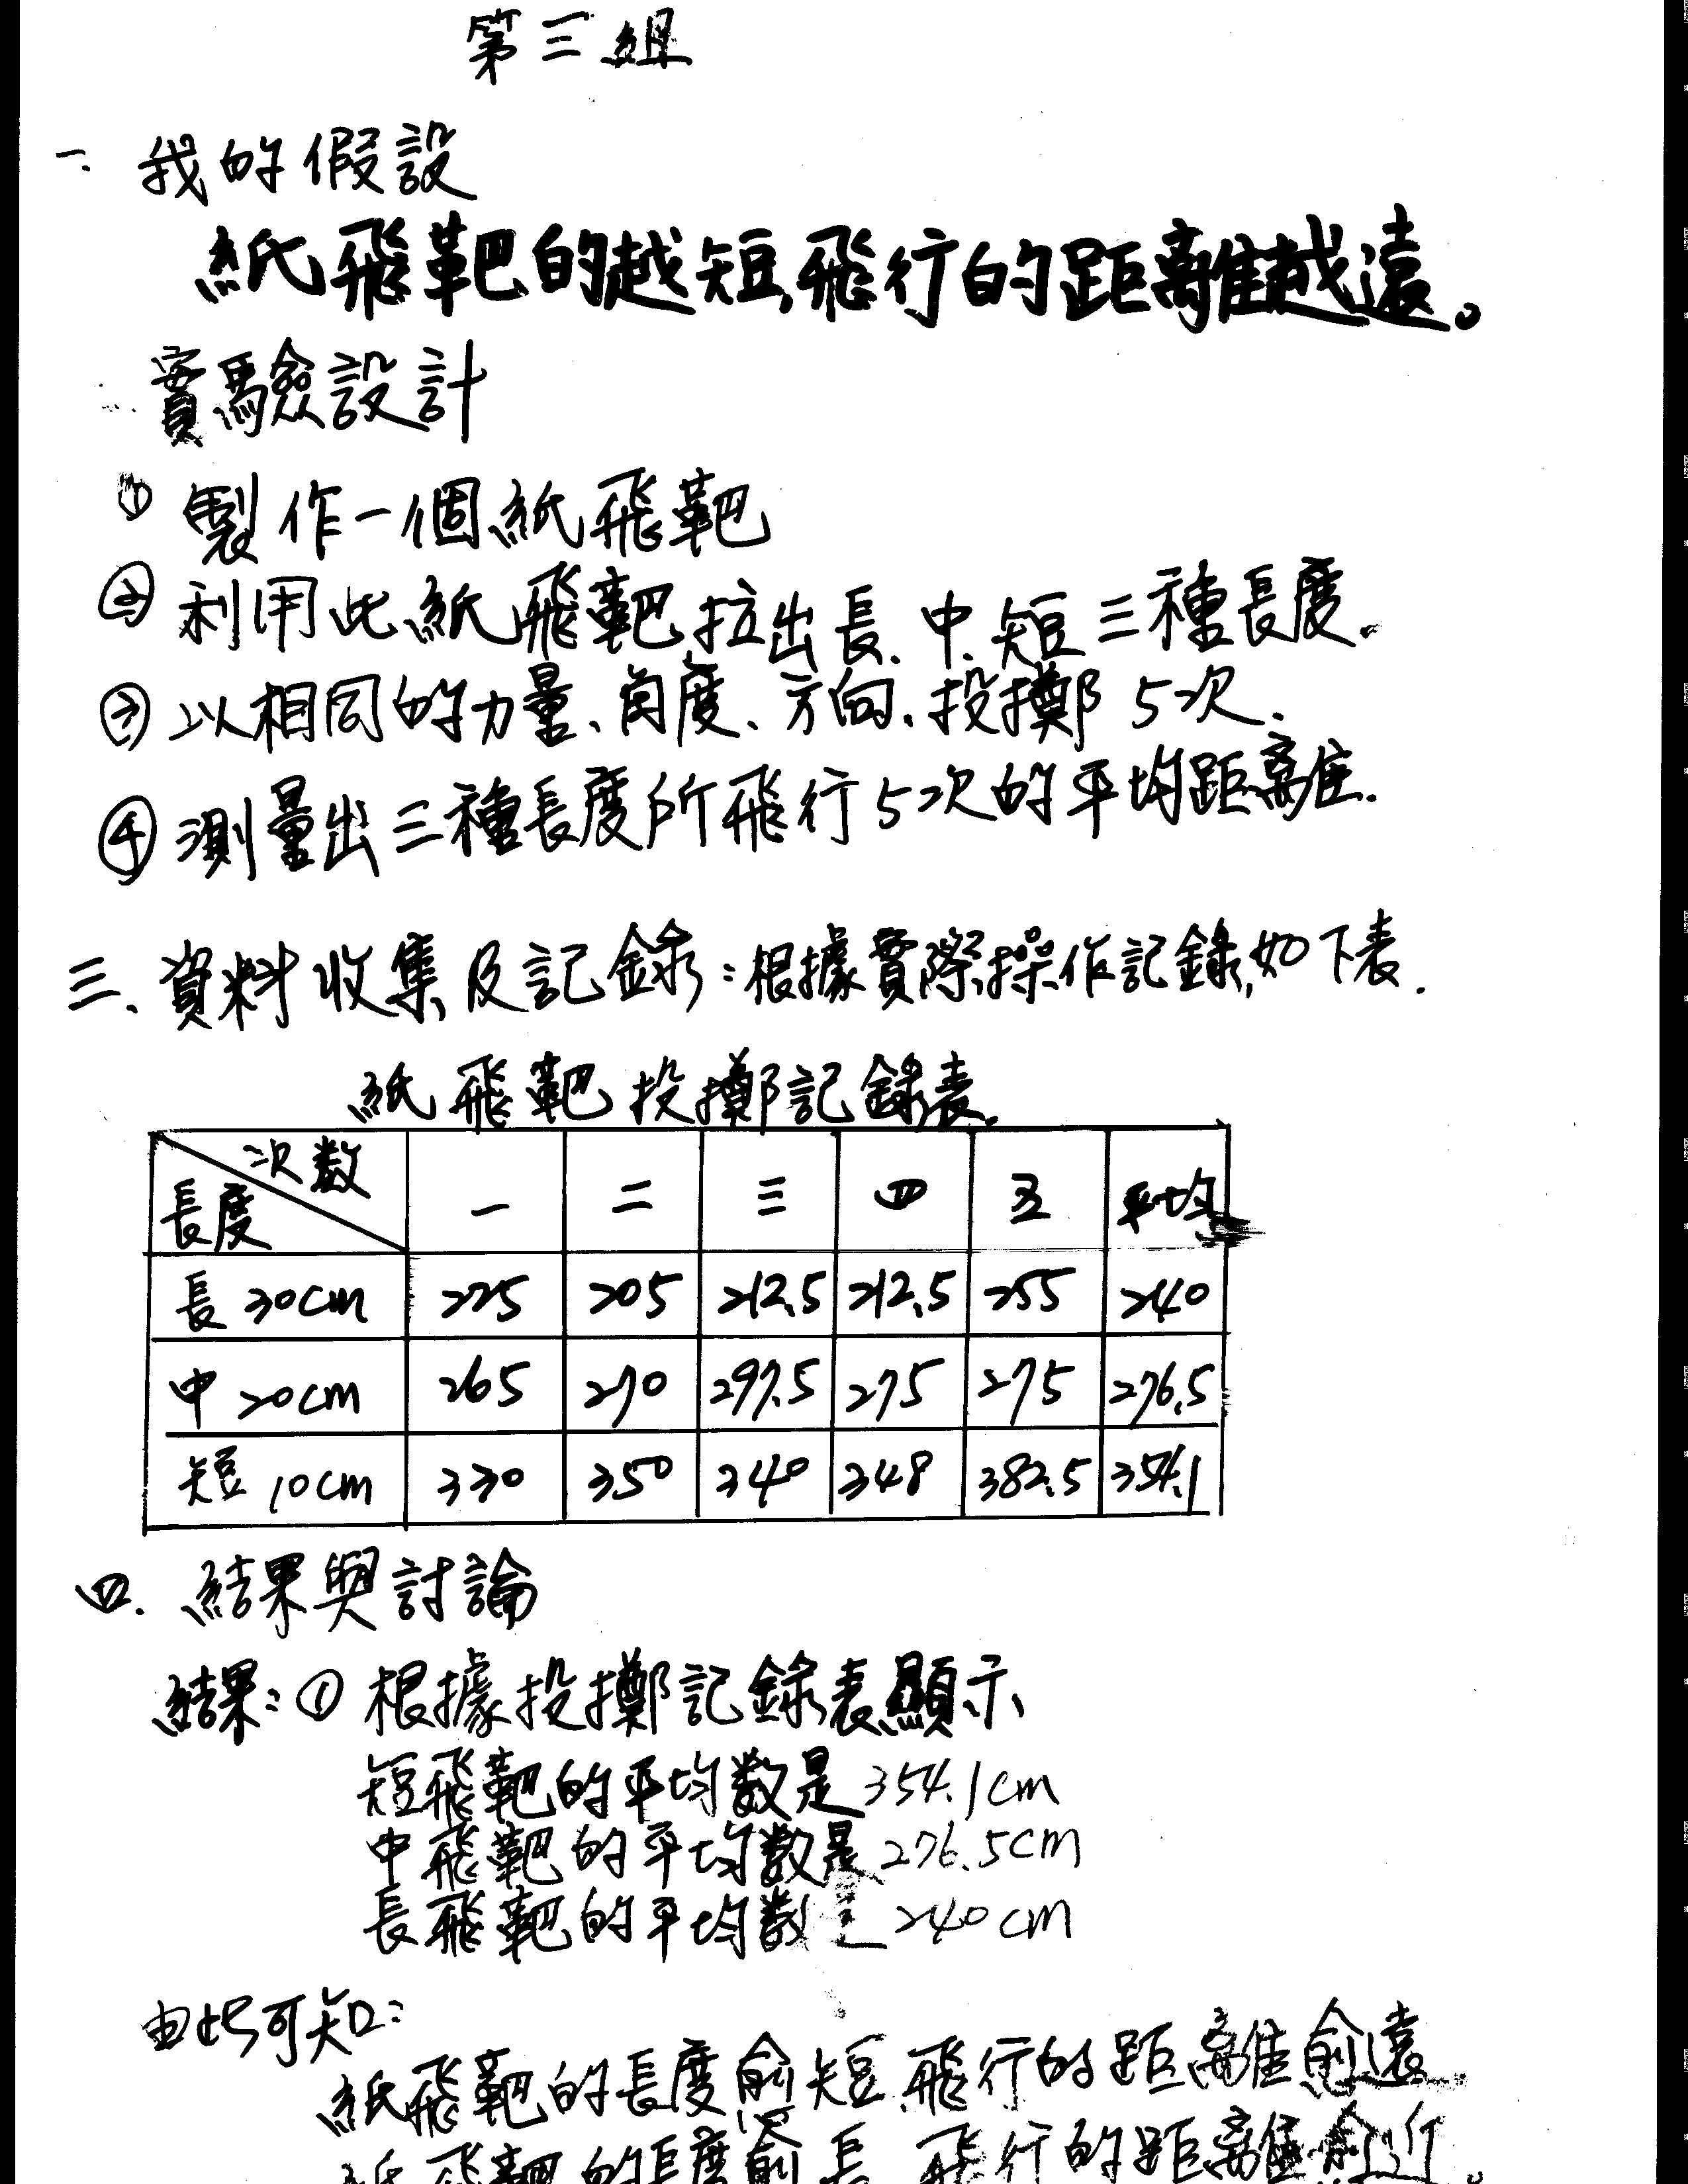 第三組
一. 我的假設
紙飛靶的越短,飛行的距離越遠。
實驗設計
① 製作一個紙飛靶
② 利用此紙飛靶拉出長.中.短三種長度.
③ 以相同的力量、角度、方向.投擲5次.
④ 測量出三種長度所飛行5次的平均距離.
三、資料收集及記錄:根據實際操作記錄,如下表.
紙飛靶投擲記錄表.
次數 長度 一 二 三 四 五 平均
長 30cm 225 205 212.5 212.5 255 240
中 20cm 265 270 297.5 275 275 276.5
短 10cm 330 350 340 348 382.5 354.1
四. 結果與討論
結果:① 根據投擲記錄表顯示
短飛靶的平均數是354.1cm
中飛靶的平均數是276.5cm
長飛靶的平均數是240cm
由此可知:
紙飛靶的長度愈短,飛行的距離愈遠
紙飛靶的長度愈長,飛行的距離愈近.